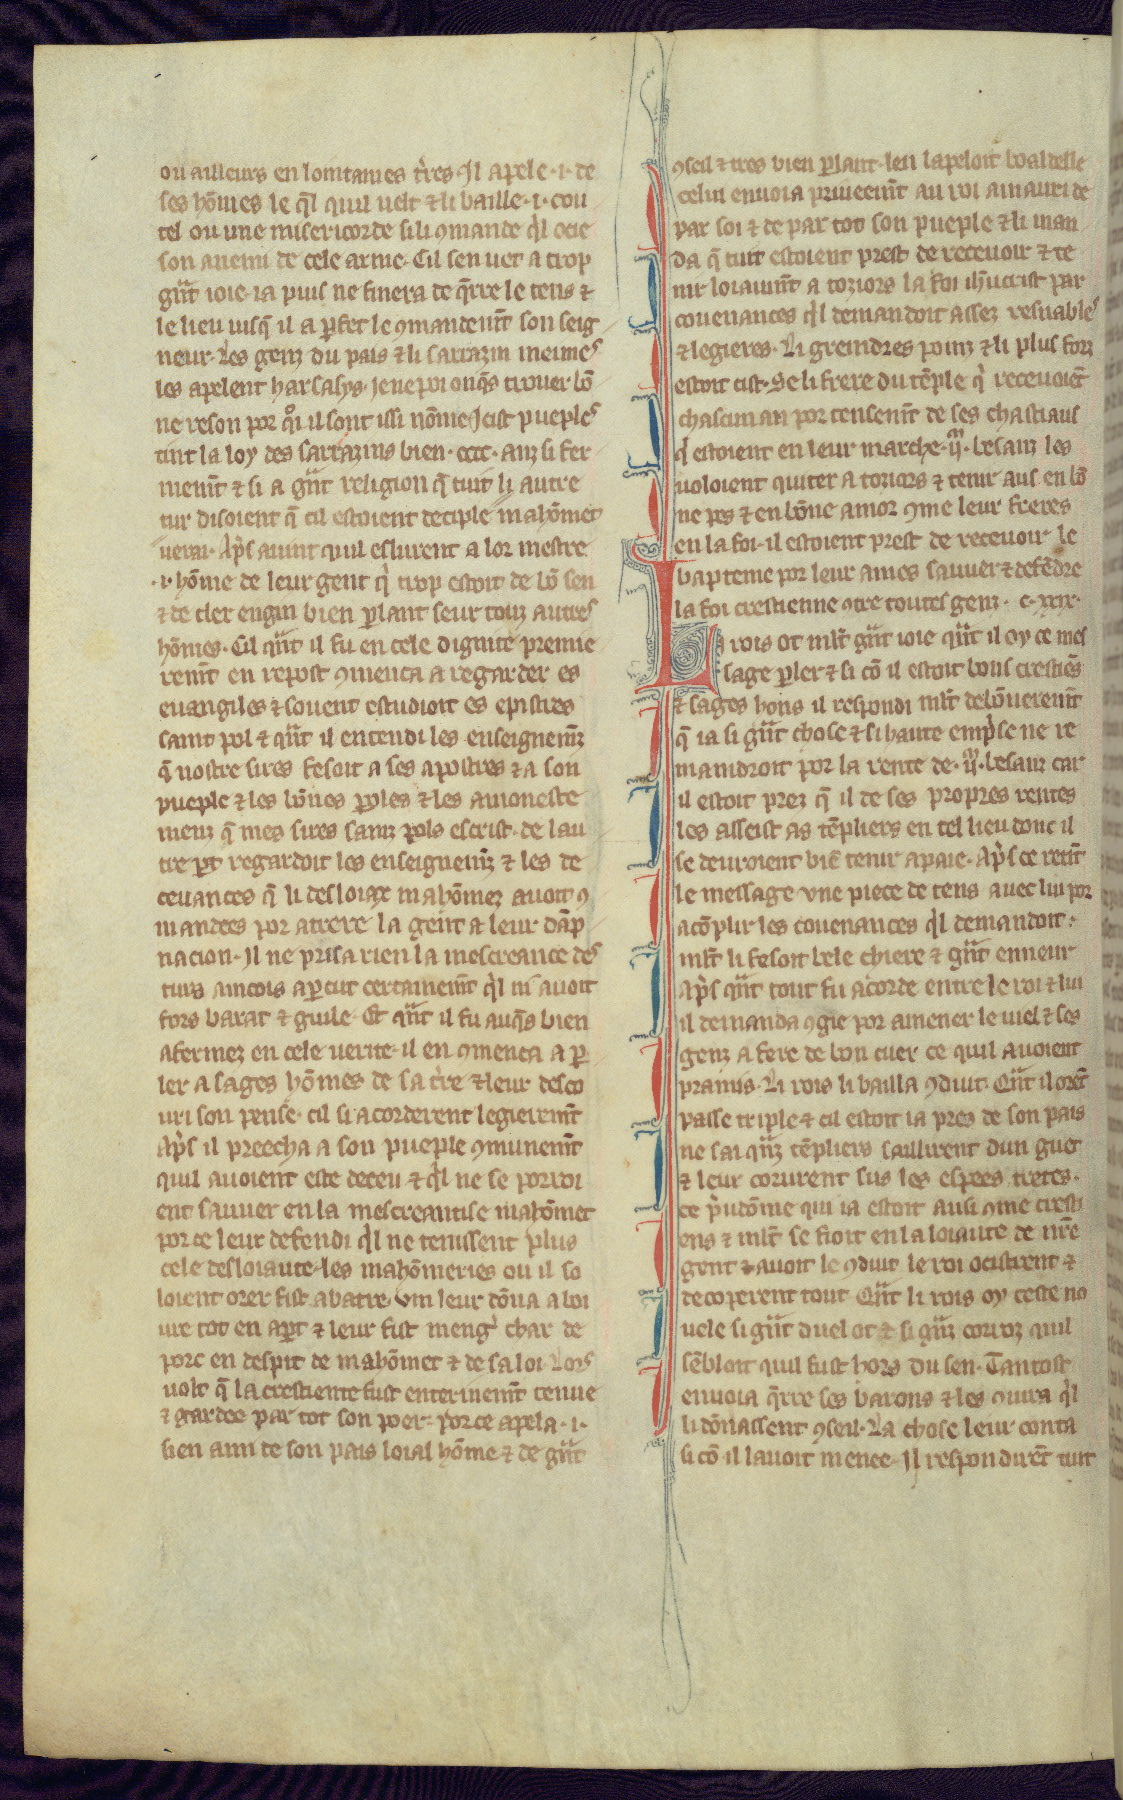 ou ailleurs en lointaines t̾res. Il apele .i. de
ses hōmes le q̄l quil velt ⁊ li baille .i. cou
tel ou une misericorde si li ꝯmande q̾l ocie
son anemi de cele arme. Cil sen vet a trop
g̃nt ioie. ia puis ne finera de q̄rre le tens ⁊
le lieu iusq̄ il a ꝑfet le ꝯmandem̄t son seig
neur. Les genz du pais ⁊ li sarrazin meimes
les apelent harsasys. ie ne poi onq̄s trouer bō
ne reson por q̊i il sont issi nōme. Icist pueples
tint la loy des sarrazins bien .cccc. anz si fer
mem̄t ⁊ si a g̃nt religion q̄ tuit li autre
tur disoient q̄ cil estoient deciple mahōmet
verai. Ap̾s avint quil eslurent a lor mestre
.i. hōme de leur gent q̾ trop estoit de bō sen
⁊ de cler engin bien ꝑlant seur touz autres
hōmes. Cil q̃nt il fu en cele dignite premie
rem̄t en repost ꝯmenca a regarder es
euangiles ⁊ souent estudioit es epistres
saint pol ⁊ q̃nt il entendi les enseignem̄z
q̄ nostre sires fesoit a ses apostres ⁊ a son
pueple ⁊ les bōnes ꝑoles ⁊ les amoneste
menz q̄ mes sires sainz pols escrist. de lau
tre ꝑt regardoit les enseignem̄z ⁊ les de
cevances q̄ li desloiax mahōmez avoit ꝯ
mandees por atrere la gent a leur dāp
nacion. Il ne prisa rien la mescreance des
turs aincois aꝑcut certainem̄t q̾l ni avoit
fors barat ⁊ guile. Et q̃nt il fu auq̄s bien
afermez en cele verite. il en ꝯmenca a ꝑ
ler a sages hōmes de sa t̾re ⁊ leur desco
uri son pense. cil si acorderent legierem̄t
Ap̾s il preecha a son pueple ꝯmunem̄t
quil avoient este deceu ⁊ q̾l ne se porroi
ent sauver en la mescreantise mahōmet
por ce leur defendi q̾l ne tenissent plus
cele desloiaute. les mahōmeries ou il so
loient orer fist abatre. vin leur dōna a boi
ure tot en aꝑt ⁊ leur fist meng̾ char de
porc en despit de mahōmet ⁊ de sa loi. Lors
volt q̄ la crestiente fust enterinem̄t tenue
⁊ gardee par tot son poer. por ce apela .i.
sien ami de son pais loial hōme ⁊ de g̃nt
ꝯseil ⁊ tres bien ꝑlant. len lapeloit boaldelle
celui envoia priveem̄t au roi amauri de
par soi ⁊ de par tot son pueple ⁊ li man
da q̄ tuit estoient prest de recevoir ⁊ te
nir loiaum̄t a toziors la foi ih̄ucrist par
covenances q̾l demandoit assez resnables
⁊ legieres. Li greindres poinz ⁊ li plus forz
estoit cist. Se li frere du tēple q̾ recevoiēt
chascun an por tensem̄t de ses chastiaus
q̾ estoient en leur marche .ij.ͫ besanz les
voloient quiter a toriors ⁊ tenir aus en bō
ne pes ⁊ en bōne amor ꝯme leur freres
en la foi. il estoient prest de recevoir le
bapteme por leur ames sauver ⁊ defēdre
la foi crestienne ꝯtre toutes genz. c.xxix.
Li rois ot ml̄t g̃nt ioie q̃nt il oy ce mes
sage ꝑler ⁊ si cō il estoit bons crestiēs
⁊ sages hons il respondi ml̄t debōnerem̄t
q̄ ia si g̃nt chose ⁊ si haute emp̾se ne re
maindroit por la rente de .ij.ͫ besanz car
il estoit prez q̄ il de ses propres rentes
les asseist as tēpliers en tel lieu donc il
se devroient biē tenir a paie. Ap̾s ce retīt
le message une piece de tens avec lui por
acōplir les covenances q̾l demandoit.
ml̄t li fesoit bele chiere ⁊ g̃nt enneur
Ap̾s q̃nt tout fu acorde entre le roi ⁊ lui
il demanda ꝯgie por amener le viel ⁊ ses
genz a fere de bon cuer ce quil avoient
pramis. Li rois li bailla ꝯduit. Q̃nt il orēt
passe triple ⁊ cil estoit ia pres de son pais
ne sai q̃nz tēpliers saillirent dun guet
⁊ leur corurent sus les espees tretes.
ce p̾udōme qui ia estoit ausi ꝯme cresti
ens ⁊ ml̄t se fioit en la loiaute de nr̄e
gent ⁊ avoit le ꝯduit le roi ocistrent ⁊
decoperent tout. Q̃nt li rois oy ceste no
vele si g̃nt duel ot ⁊ si g̃nz corroz quil
sēbloit quil fust hors du sen. Tantost
envoia q̄rre ses barons ⁊ les ꝯiura q̾l
li dōnassent ꝯseil. La chose leur conta
si cō il lavoit menee. Il respondirēt tuit